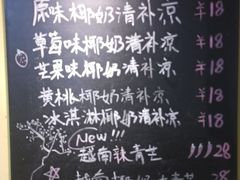 原味椰奶清补凉 ¥18
草莓味椰奶清补凉 ¥18
芒果味椰奶清补凉 ¥18
黄桃椰奶清补凉 ¥18
冰淇淋椰奶清补凉 ¥18
New!!!
越南辣青芒 28
越南椰 青芒 28